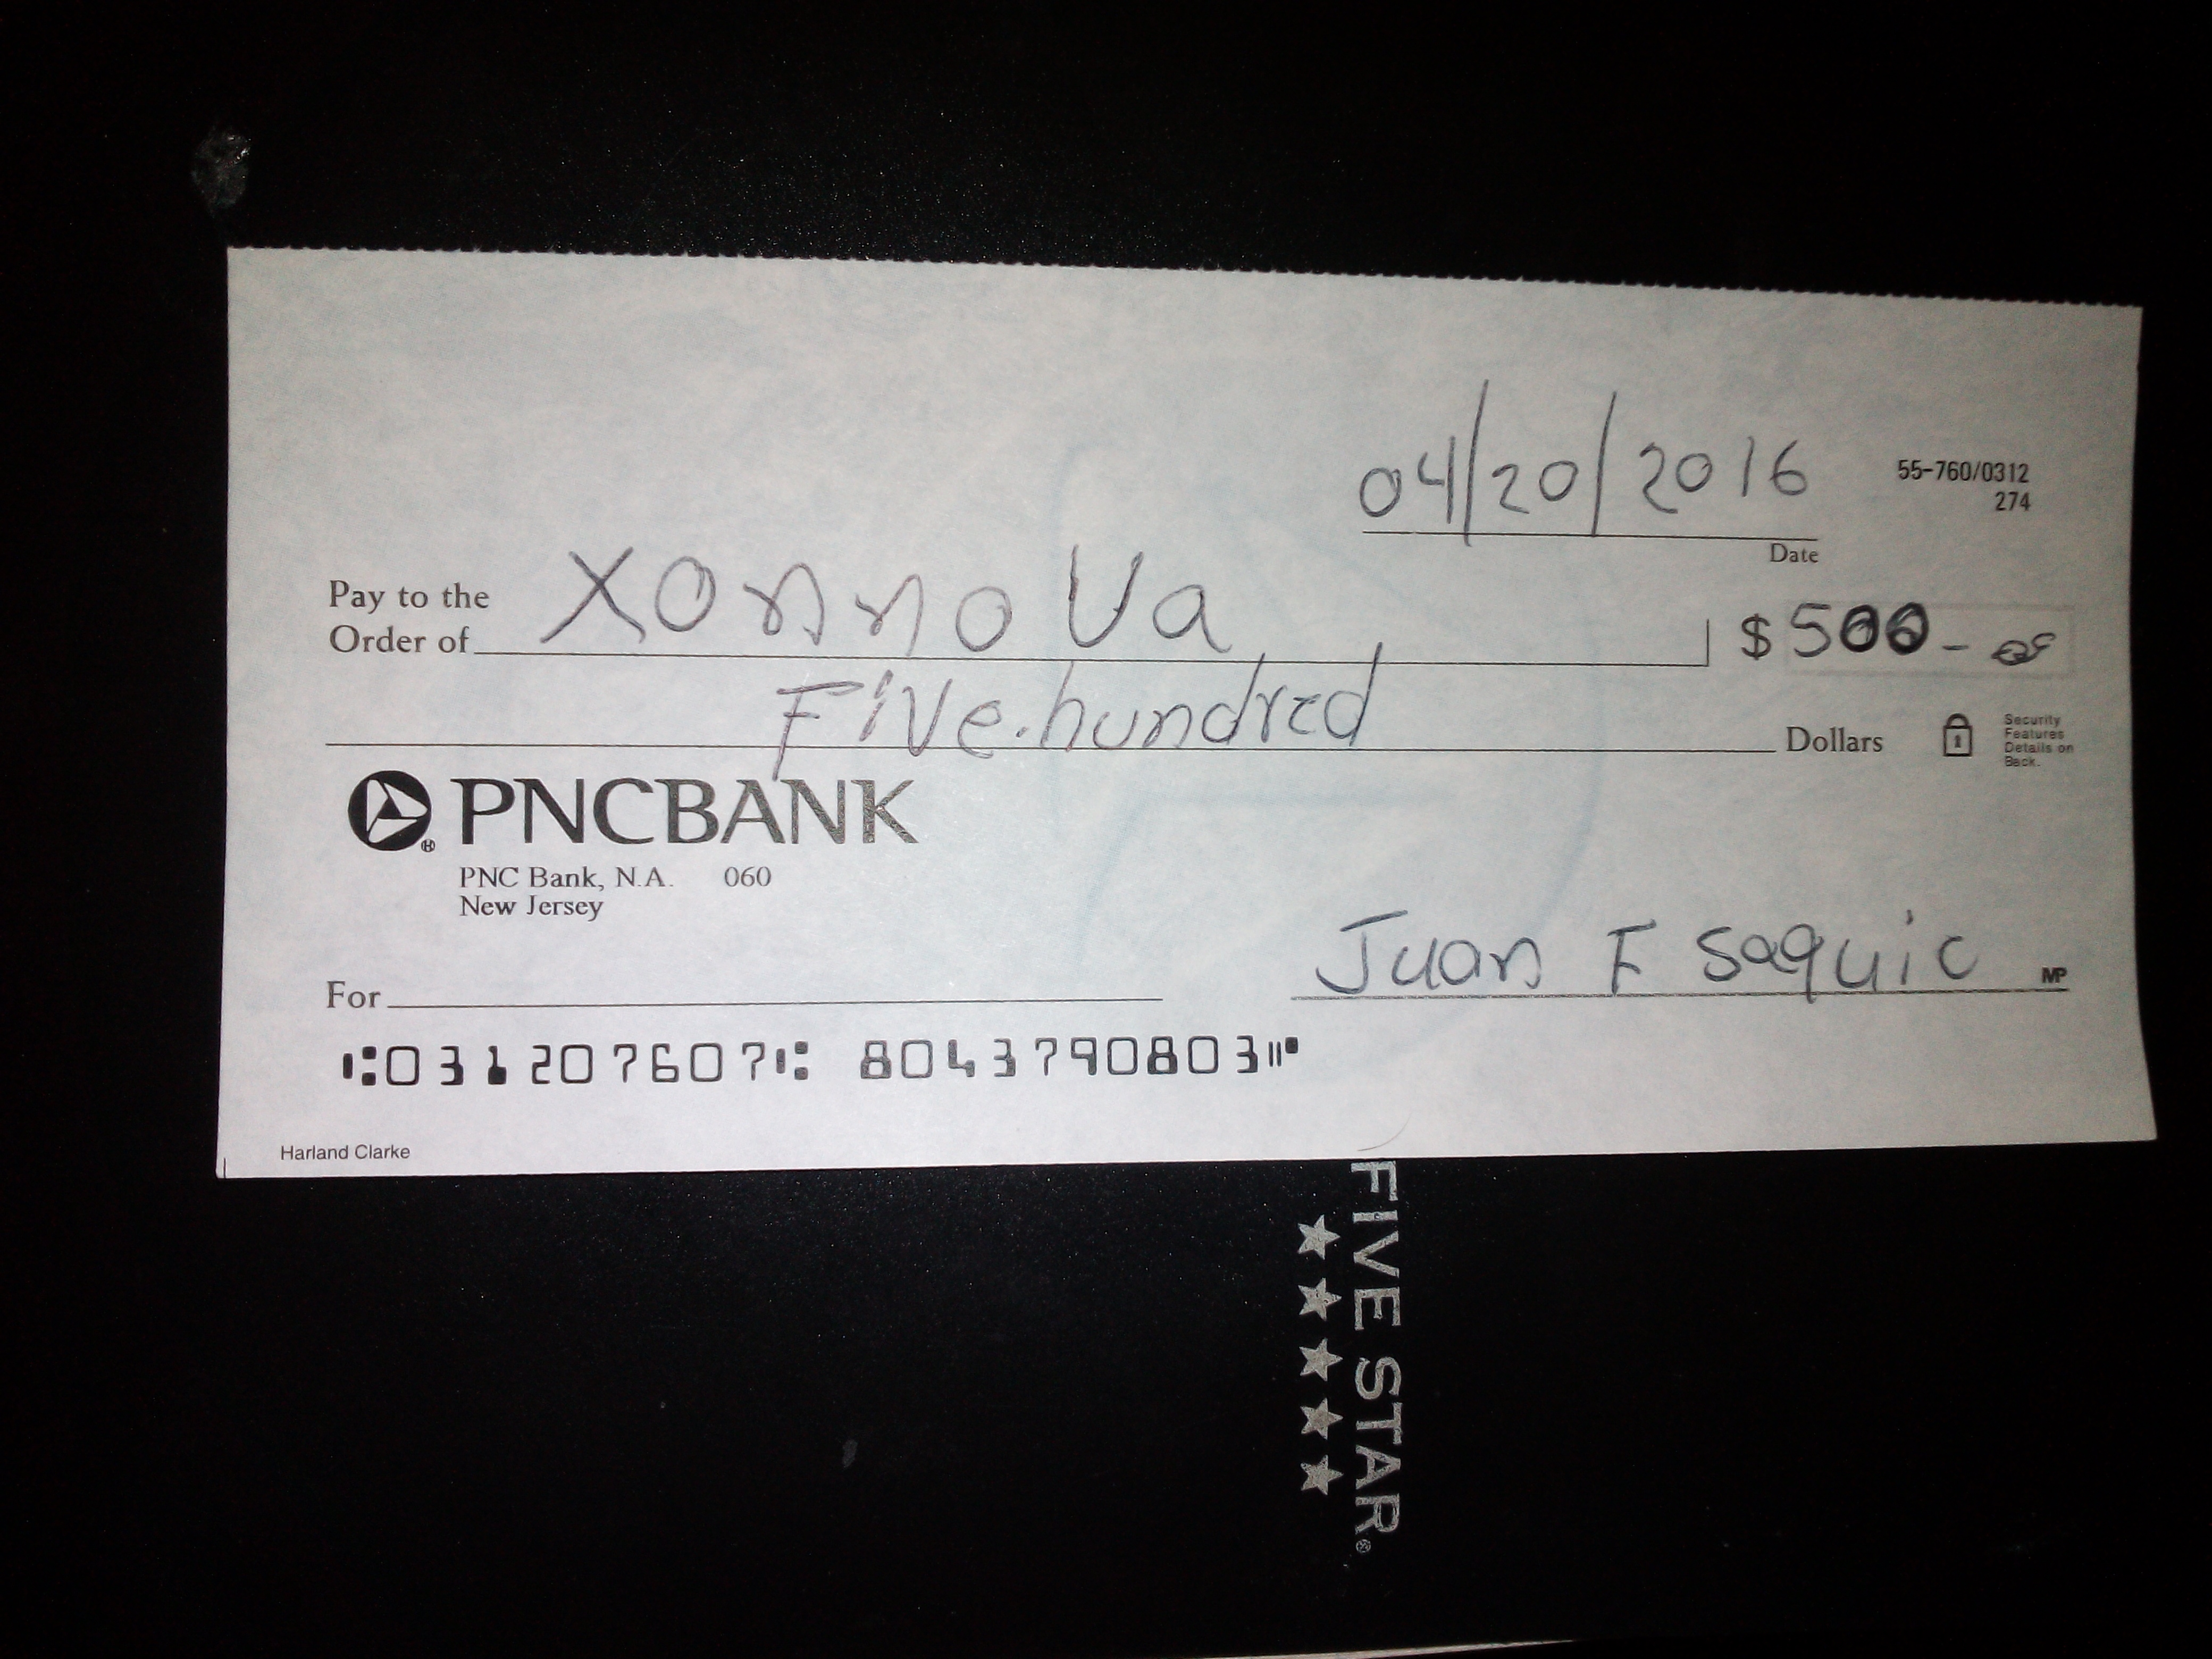 04/20/2016
55-760/0312
274
Date
Pay to the
Order of XonnoVa $ 500 -
Five.hundred Dollars
Security
Features
Details on
Back.
PNCBANK
PNC Bank, N.A. 060
New Jersey
Juan F saquic MP
For
⑆031207607⑆ 8043790803⑈
Harland Clarke
FIVE STAR